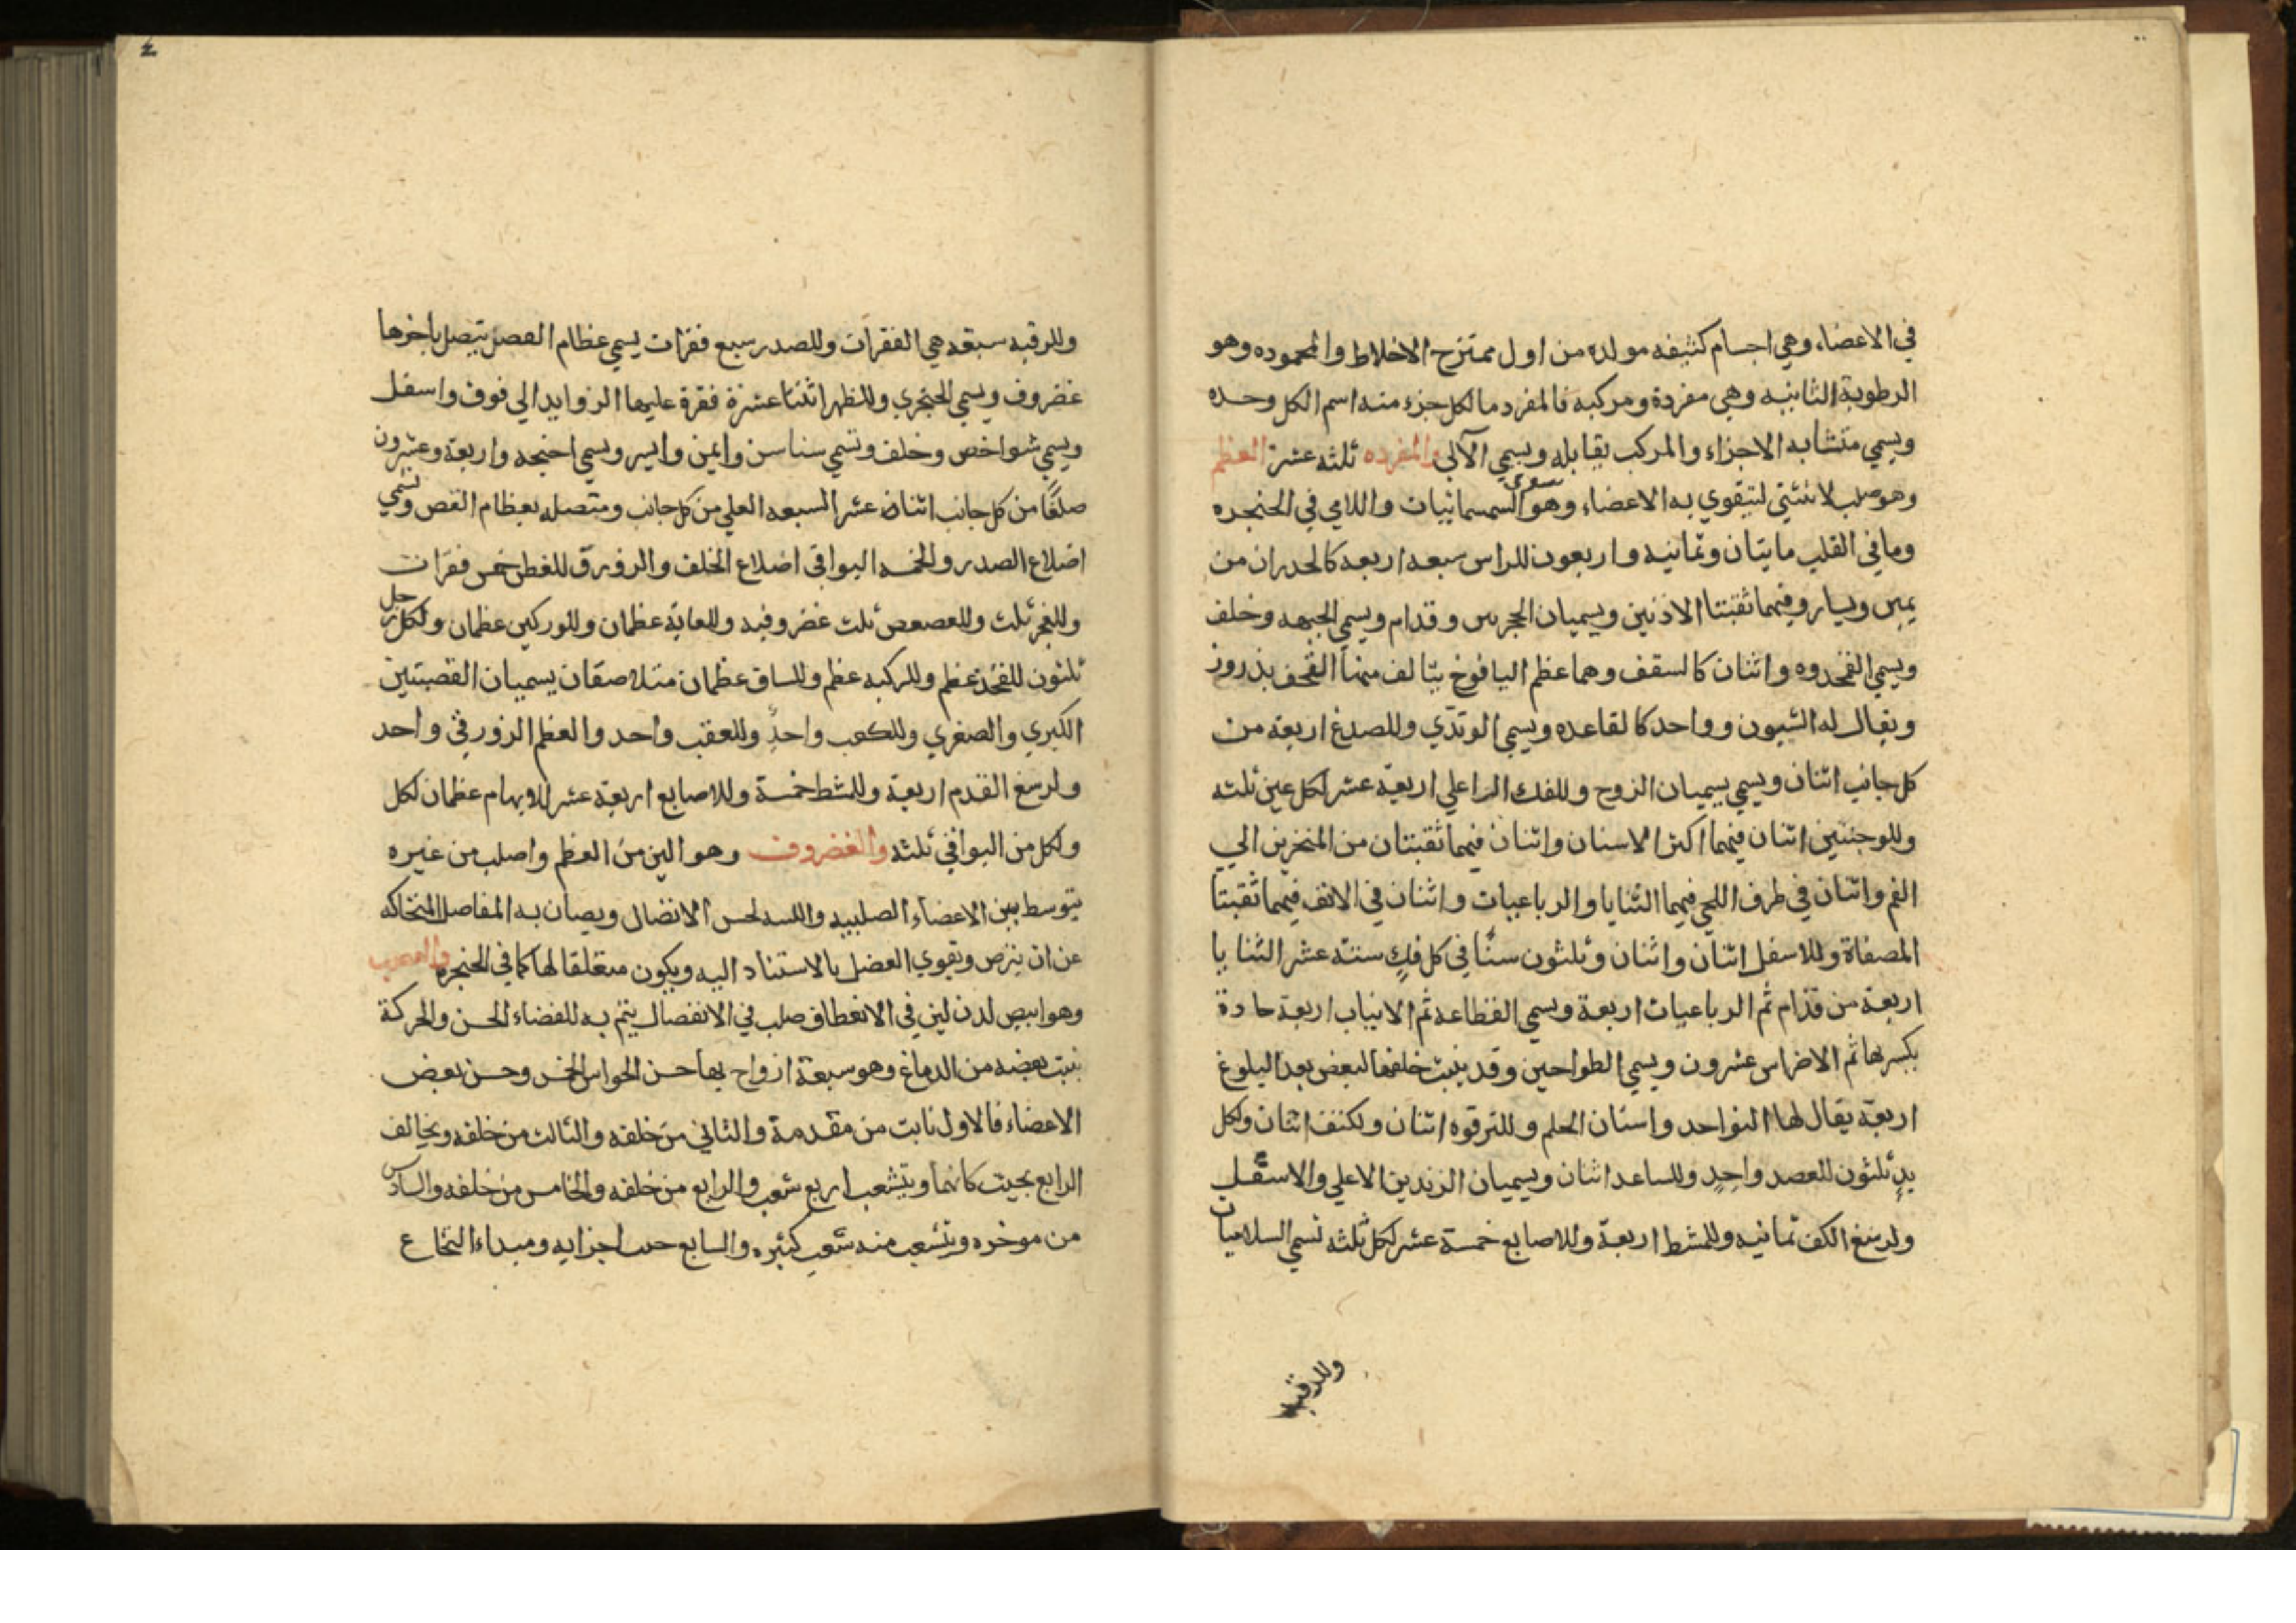 في الاعضاء وهي اجسام كثيفه مولده من اول ممتزج الاخلاط والمحموده وهو
الرطوبة الثانيه وهي مفردة ومركبه فالمفرد ما لكل جزء منه اسم الكل وحده
ويسمي متشابه الاجزاء والمركب يقابله ويسمي الآلي والمفرده ثلثه عشر العظم
وهو صلب لا ينثني لتيقوي به الاعضاء وهو سوي السمسمانيات واللامي في الحنجره
وما في القلب مايتان وثمانيه واربعون للراس سبعه اربعه كالجدران من
يمين ويسار وفيهما ثقبتا الاذنين ويسميان الحجرين وقدام ويسمي الجبهه وخلف
ويسمي القمحدوه واثنان كالسقف وهما عظم اليافوخ يتالف منها القحف بدروز
ويقال له الشيون وواحد كالقاعده ويسمي الوتدي وللصدغ اربعة من
كل جانب اثنان ويسمي يسميان الزوج وللفك الاعلي اربعة عشر لكل عين ثلثه
وللوجنتين اثنان فيهما اكثر الاسنان واثنان فيهما ثقبتان من المنخرين الي
الفم واثنان في طرف اللحي فيهما الثنايا والرباعيات واثنان في الانف فيهما ثقبتا
المصفاة وللاسفل اثنان واثنان وثلثون سنًا في كل فكٍ ستة عشر الثنايا
اربعة من قدام ثم الرباعيات اربعة ويسمي القطاعه ثم الانياب اربعة حادة
يكسر بها ثم الاضراس عشرون ويسمي الطواحين وقد ينبت خلفها لبعض بعد البلوغ
اربعة يقال لها النواجد واسنان الحلم وللترقوه اثنان ولكتف اثنان ولكل
يدٍ ثلثون للعصد واحدٍ وللساعد اثنان ويسميان الزندين الاعلي والاسفل
ولرسغ الكف ثمانيه وللمشط اربعة وللاصابع خمسة عشر لكل ثلثه تسمي السلاميات
وللرقبه
٤
وللرقبه سبعة هي الفقرات وللصدر سبع فقرات يسمي عظام القص يتصل باخرها
غضروف ويسمي الحنجري وللظهر اثنتا عشرة فقرة عليها الزوايد الي فوق واسفل
ويسمي شواخص وخلف وتسمي سناسن وايمن وايسر ويسمي اجنحه واربعة وعشرون
ضلعًا من كل جانب اثنان عشر السبعه العلي من كل جانب ومتصله بعظام القص وتسمي
اضلاع الصدر والخمسه البواقي اضلاع الخلف والزور للقطن خمس فقرات
وللعجز ثلث وللعصعص ثلث غضروفيه وللعانة عظمان وللوركين عظمان ولكل رجل
ثلثون للفخذ عظم وللركبه عظم وللساق عظمان متلاصقان يسميان القصبتين
الكبري والصغري وللكعب واحدٌ وللعقب واحد والعظم الزورقي واحد
ولرسغ القدم اربعة وللمشط خمسة وللاصابع اربعة عشر للابهام عظمان لكل
ولكل من البواقي ثلثه والغضروف وهو الين من العظم واصلب من غيره
يتوسط بين الاعضاء الصلبيه واللينه لحسن الاتصال ويصان به المفاصل المتحاكه
عن ان ترض وتقوي العضل بالاستناد اليه ويكون متعلقا لها كما في الحنجره والعصب
وهو ابيض لدن لين في الانعطاف صلب في الانفصال يتم به للفضاء الحس والحركة
ينبت بعضه من الدماغ وهو سبعة ازواج بها حس الحواس الخمس وحس بعض
الاعضاء فالاول نابت من مقدمة والثاني من خلفه والثالث من خلفه ويخالف
الرابع بحيث كانهما ويتشعب اربع شعب والرابع من خلفه والخامس من خلفه والسادس
من موخره وتتشعب منه شعب كثيره والسابع اجزايه ومبداء النخاع